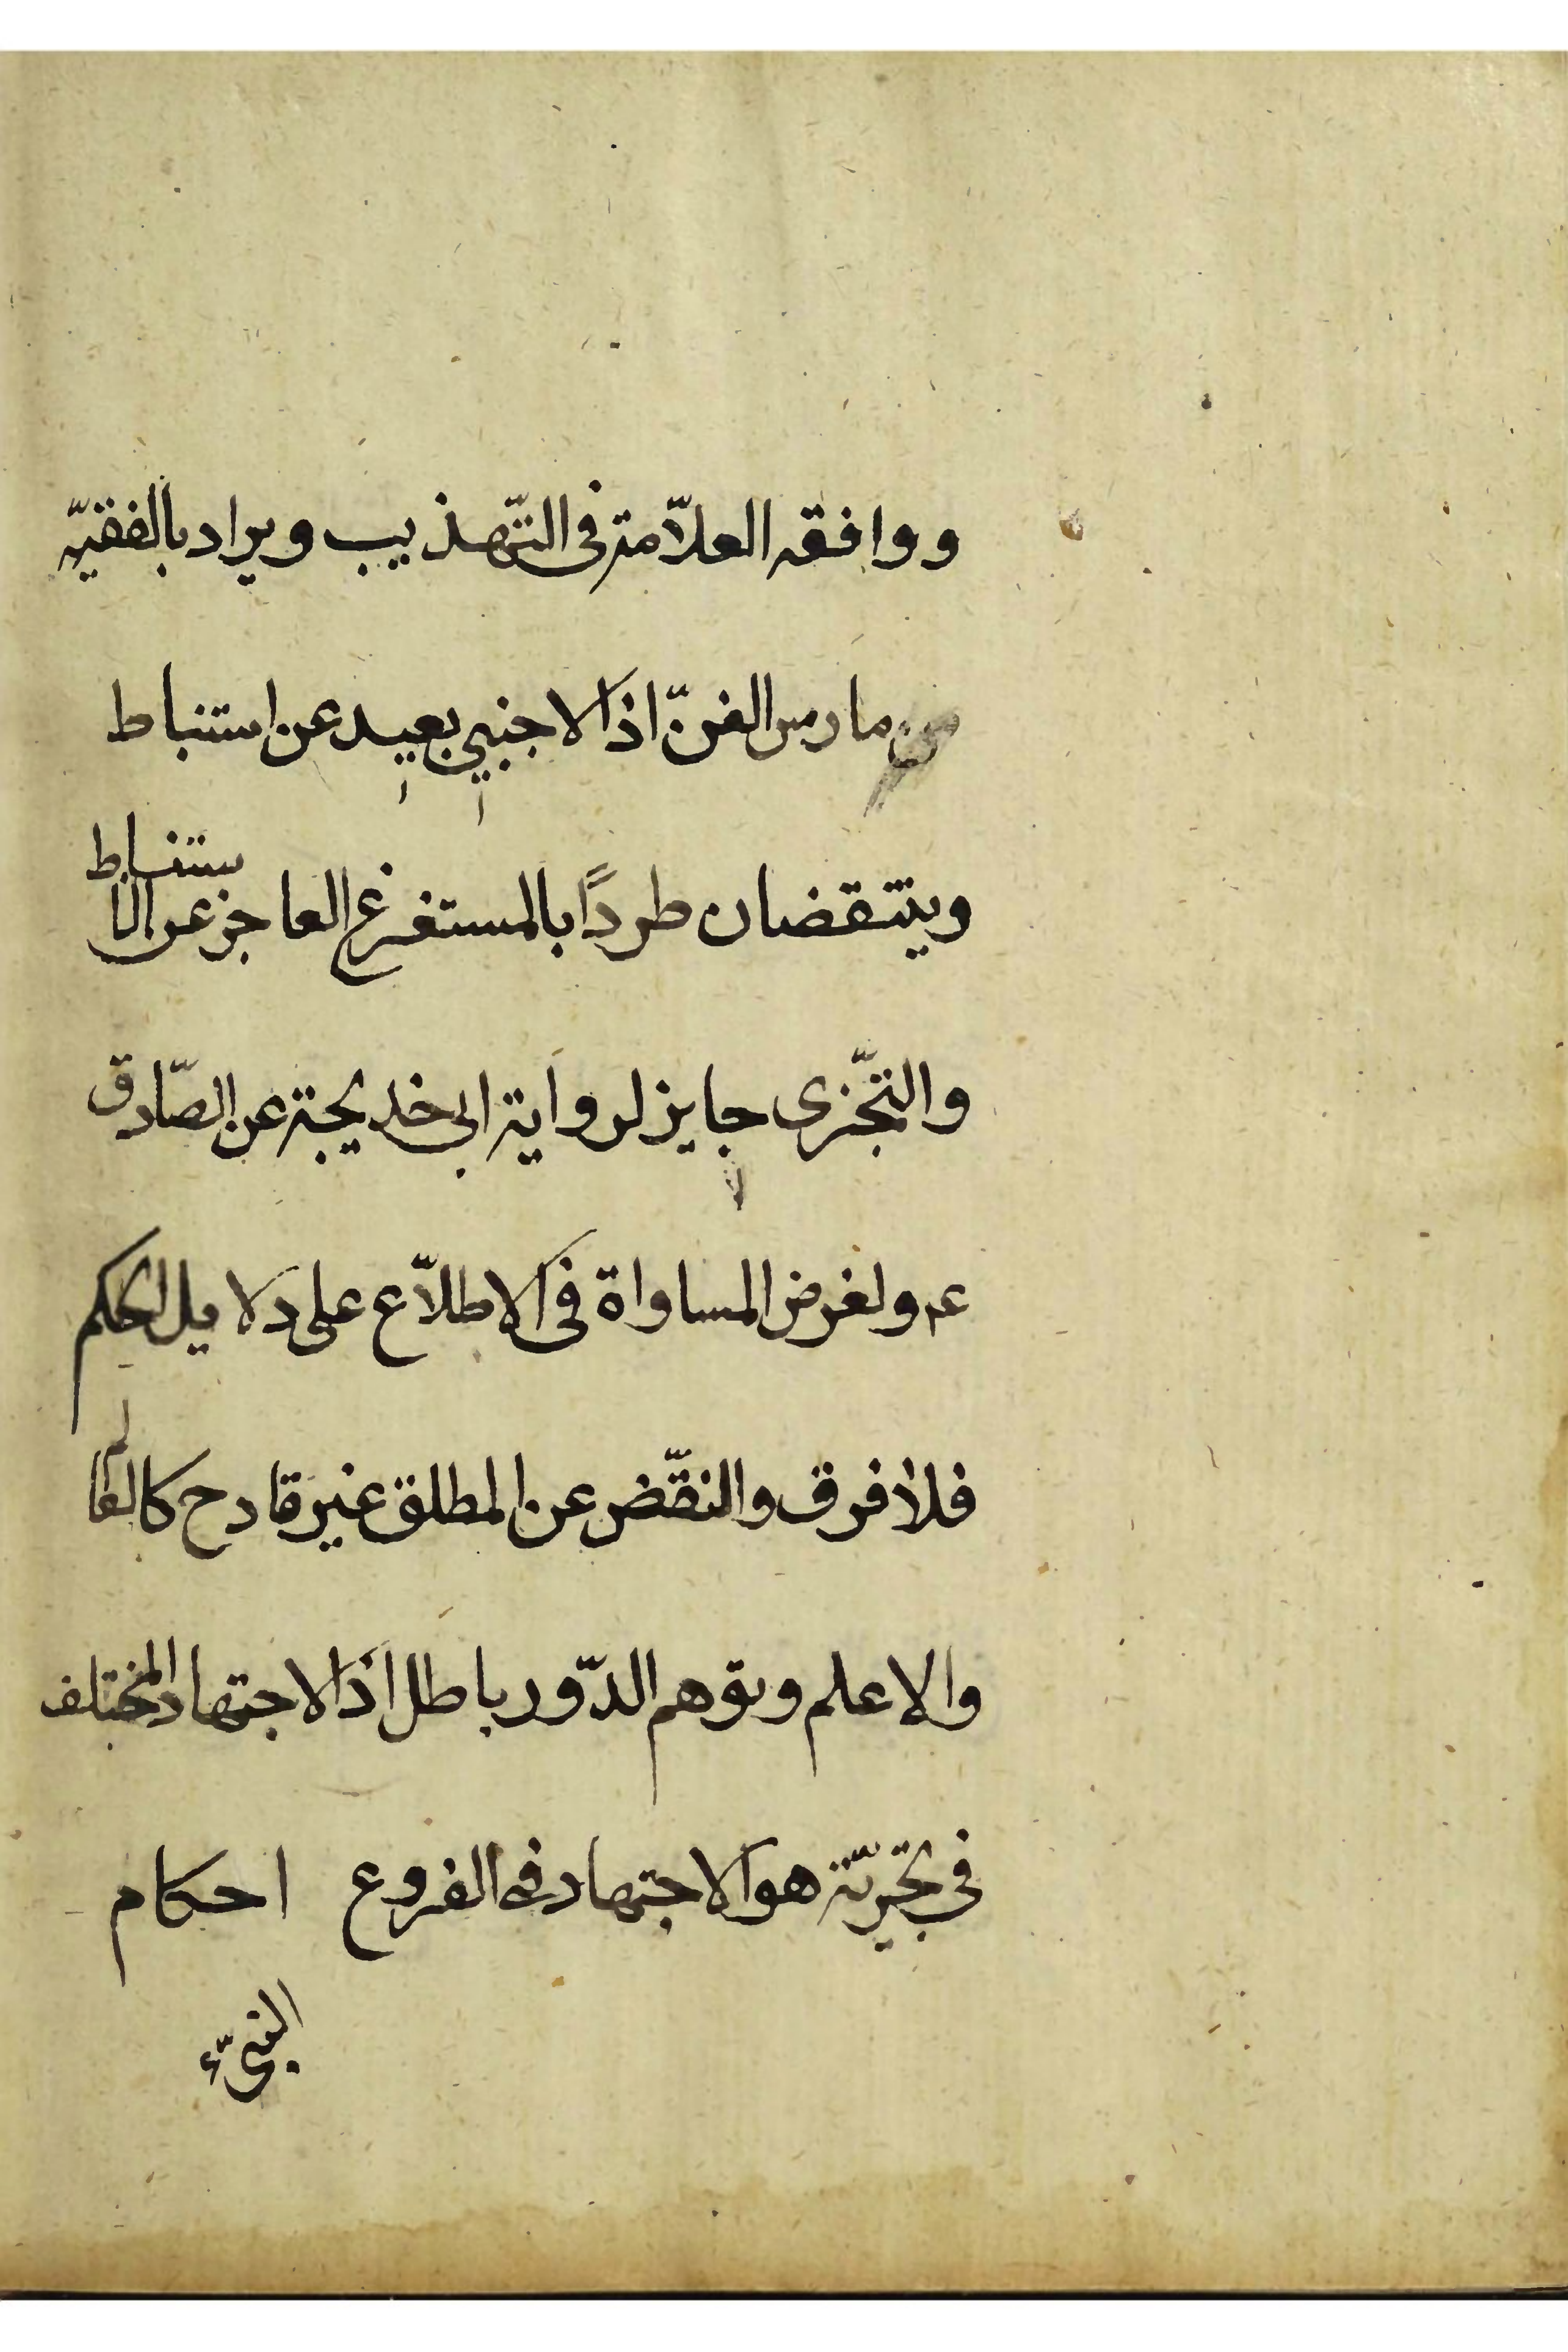 ووافقه العلّامة فى التّهذيب ويراد بالفقيّه
من مارس الفنّ اذا لاجنبي بعيد عن استنباط
وينتقضان طردًا بالمستفرغ العاجز عن الاستنباط
والتجّزى جايز لرواية ابى خديجة عن الصّادق
عم ولفرض المساواة فى الاطلاّع على دلايل الحكم
فلا فرق والنقّض عن المطلق غير قادح كالعالم
والاعلم وتوهم الدّور باطل اذا لاجتهاد المختلف
فى تجزيّة هو الاجتهاد فى الفروع احكام
النبىّ